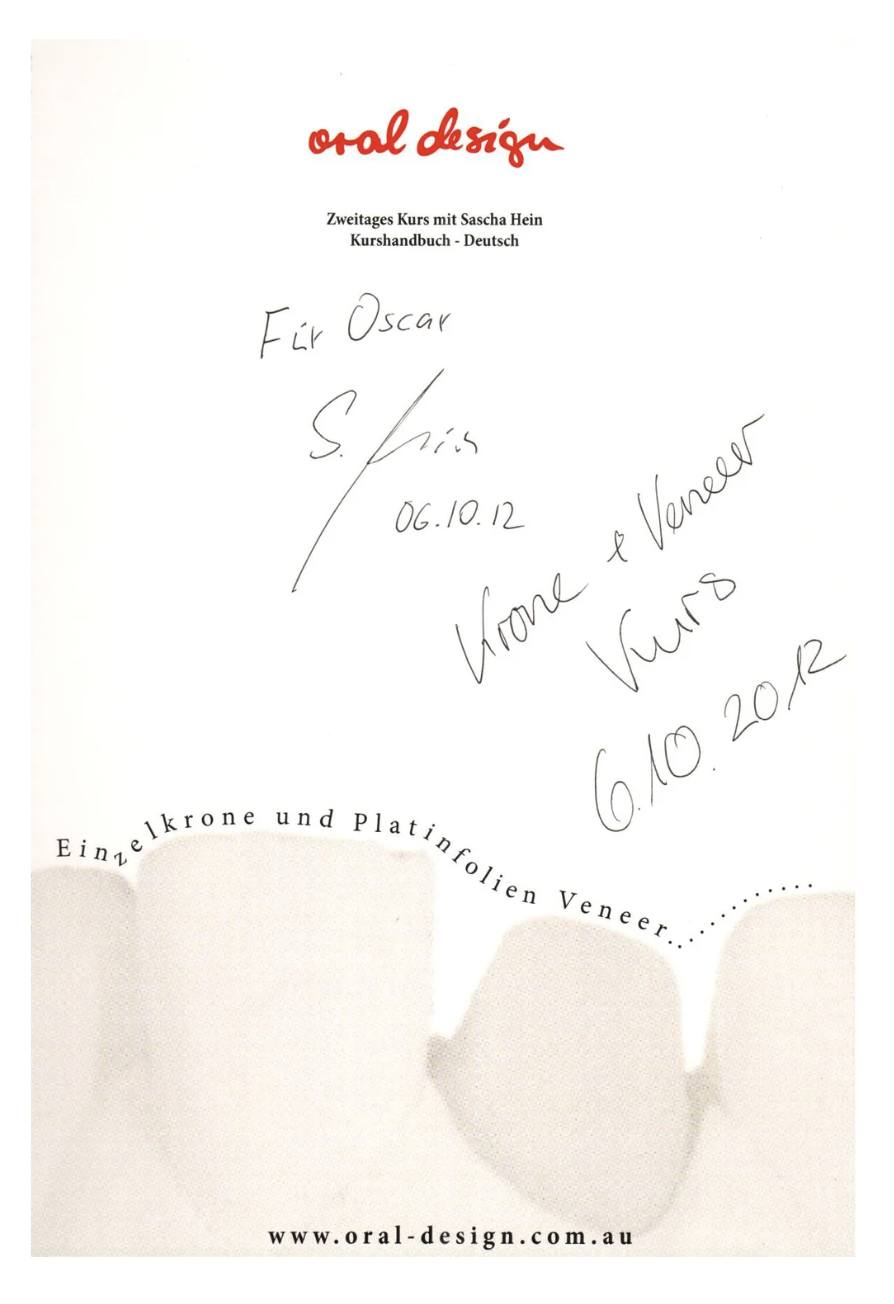 oral design
Zweitages Kurs mit Sascha Hein
Kurshandbuch - Deutsch
Für Oscar
S. Hein
06.10.12
Krone + Veneer
Kurs
6.10.2012
Einzelkrone und Platinfolien Veneer...............
www.oral-design.com.au